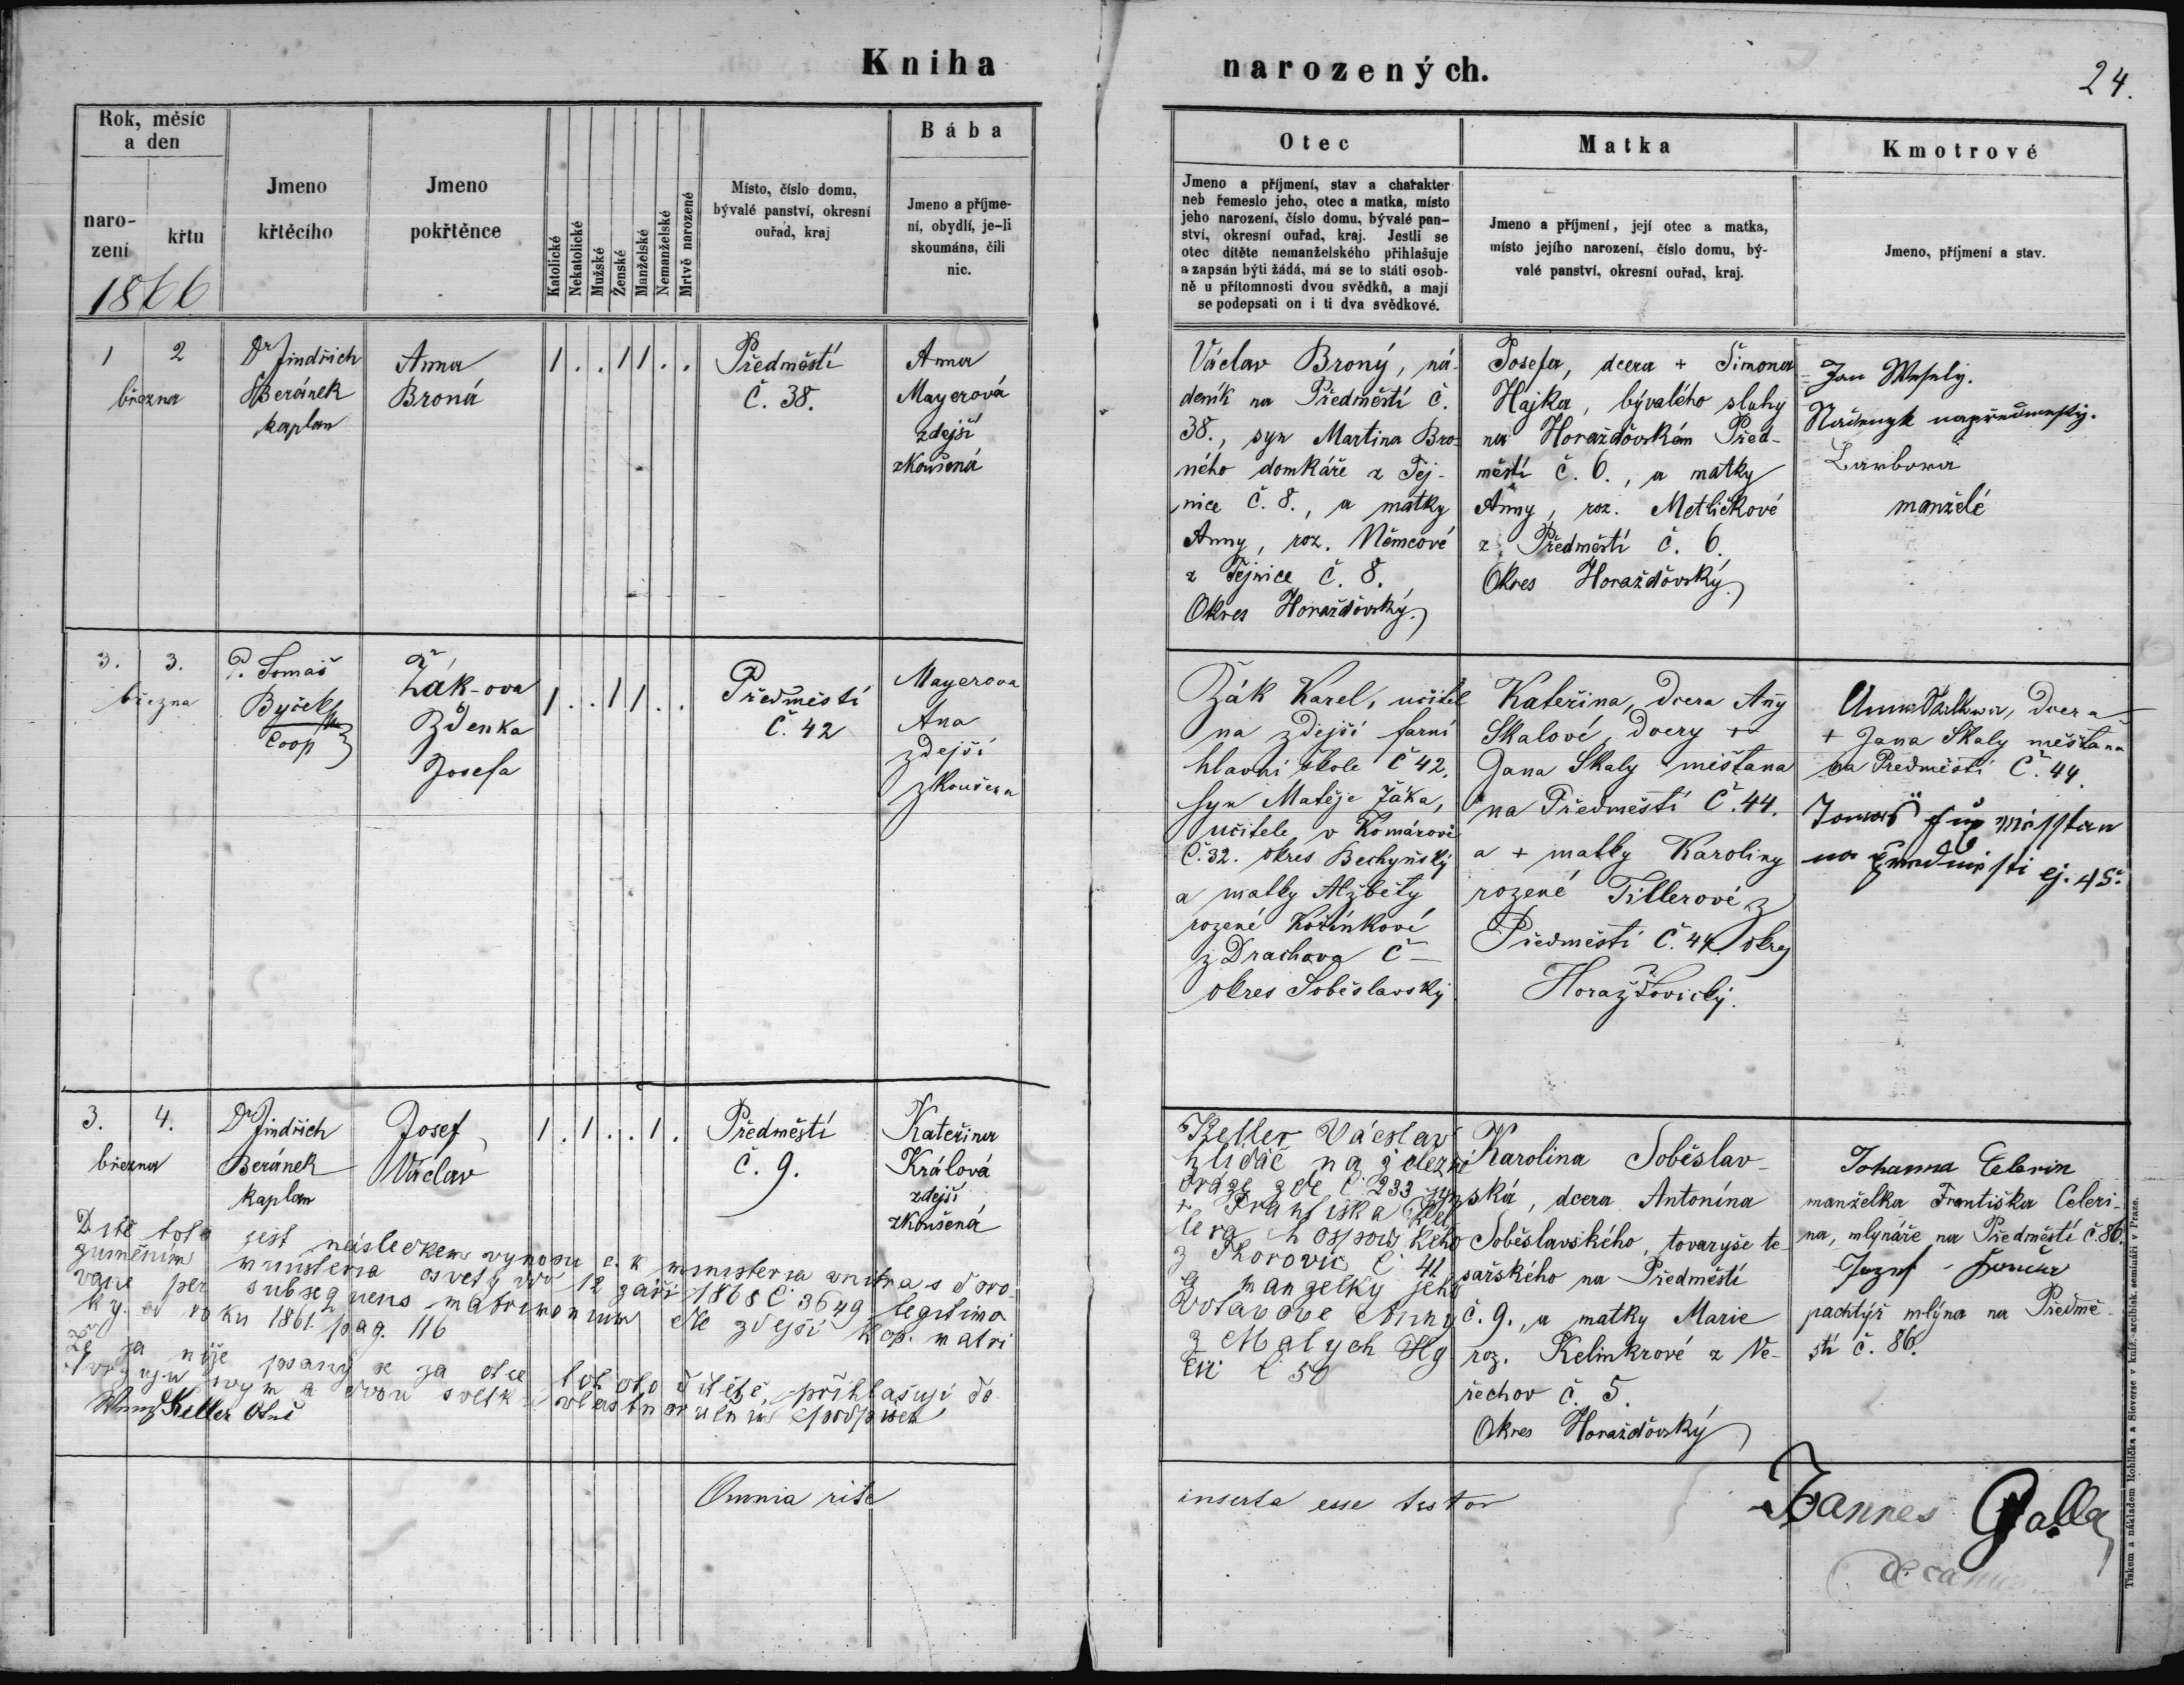 Kniha narozených.
24.
Rok, měsíc
a den
naro-
zení
křtu
1866
Jmeno
křtěcího
Jmeno
pokřtěnce
Katolické
Nekatolické
Mužské
Ženské
Manželské
Nemanželské
Mrtvě narozené
Místo, číslo domu,
bývalé panství, okresní
ouřad, kraj
Bába
Jmeno a příjme-
ní, obydlí, je-li
skoumána, čili
nic.
Otec
Jmeno a příjmení, stav a charakter
neb řemeslo jeho, otec a matka, místo
jeho narození, číslo domu, bývalé pan-
ství, okresní ouřad, kraj. Jestli se
otec dítěte nemanželského přihlašuje
a zapsán býti žádá, má se to státi osob-
ně u přítomnosti dvou svědků, a mají
se podepsati on i ti dva svědkové.
Matka
Jmeno a příjmení, její otec a matka,
místo jejího narození, číslo domu, bý-
valé panství, okresní ouřad, kraj.
Kmotrové
Jmeno, příjmení a stav.
1 2
března
Dr Jindřich
Beránek
kaplan
Anna
Broná
1 . . 1 1 . .
Předměstí
č. 38.
Anna
Mayerová
zdejší
zkoušená
Václav Broný, ná-
deník na Předměstí č.
38., syn Martina Bro-
ného domkáře z Těj-
nice č. 8., a matky
Anny, roz. Němcové
z Tějnice č. 8.
Okres Horažďovský.
Josefa, dcera + Šimona
Hajka, bývalého sluhy
na Horažďovském Před-
městí č. 6., a matky
Anny, roz. Metličkové
z Předměstí č. 6.
Okres Horažďovský.
Jan Wesely.
Barbora
manželé
3. 3.
března
P. Tomáš
Byček
Coop
Žák-ova
Zdenka
Josefa
1 . . 1 1 . .
Předměstí
Č. 42
Mayerova
Ana
zdejší
zkoušena
Žák Karel, učitel
na zdejší farní
hlavní škole č 42,
syn Matěje Žáka,
učitele v Komárově
Č. 32. okres Bechyňský
a matky Alžběty
rozené Kořínkové
z Drachova č —
okres Soběslavský
Kateřina, dcera Any
Skalové, dcery +
Jana Skaly měšťana
na Předměstí Č. 44.
a + matky Karoliny
rozené Tillerové z
Předměstí Č. 44 okres
Horažďovický.
Anna Skalkova, dcera
+ Jana Skaly měšťana
na Předměstí Č. 44.
3. 4.
března
Dr Jindřich
Beránek
kaplan
Josef
Václav
1 . 1 . . 1 .
Předměstí
č. 9.
Kateřina
Králová
zdejší
zkoušená
Dítě toto jest následkem vynosu c. k ministeria vnitra s doro-
zuměním ministeria osvěty ddo 12 září 1868 č 3649 legitimo
vané per subsequens matrimonium dle zdejší kop. matri
ky. od roku 1861. pag. 116
Že ja níže psaný se za otce tohoto dítěte přihlašuji do
Keller Otec
Keller Václav
hlídač na železné
dráze zde č 233 syn
+ Františka Kel
lera
z
z manželky jeho
Votavove Anny
z Malých Hy
čic č 50
Karolina Soběslav-
ská, dcera Antonína
Soběslavského, tovaryše te-
sařského na Předměstí
č. 9., a matky Marie
roz. Kelinkrové z Ne-
řechov č. 5.
Okres Horažďovský
Johanna Celerin
manželka Františka Celeri-
na, mlynáře na Předměstí č. 86.
pachtýř mlýna na Předmě-
stí č. 86.
Omnia rite inserta esse testor
Joannes Galla
decanus
Tiskem a nákladem Rohlíčka a Sieverse v kníž. archbisk. semináři v Praze.